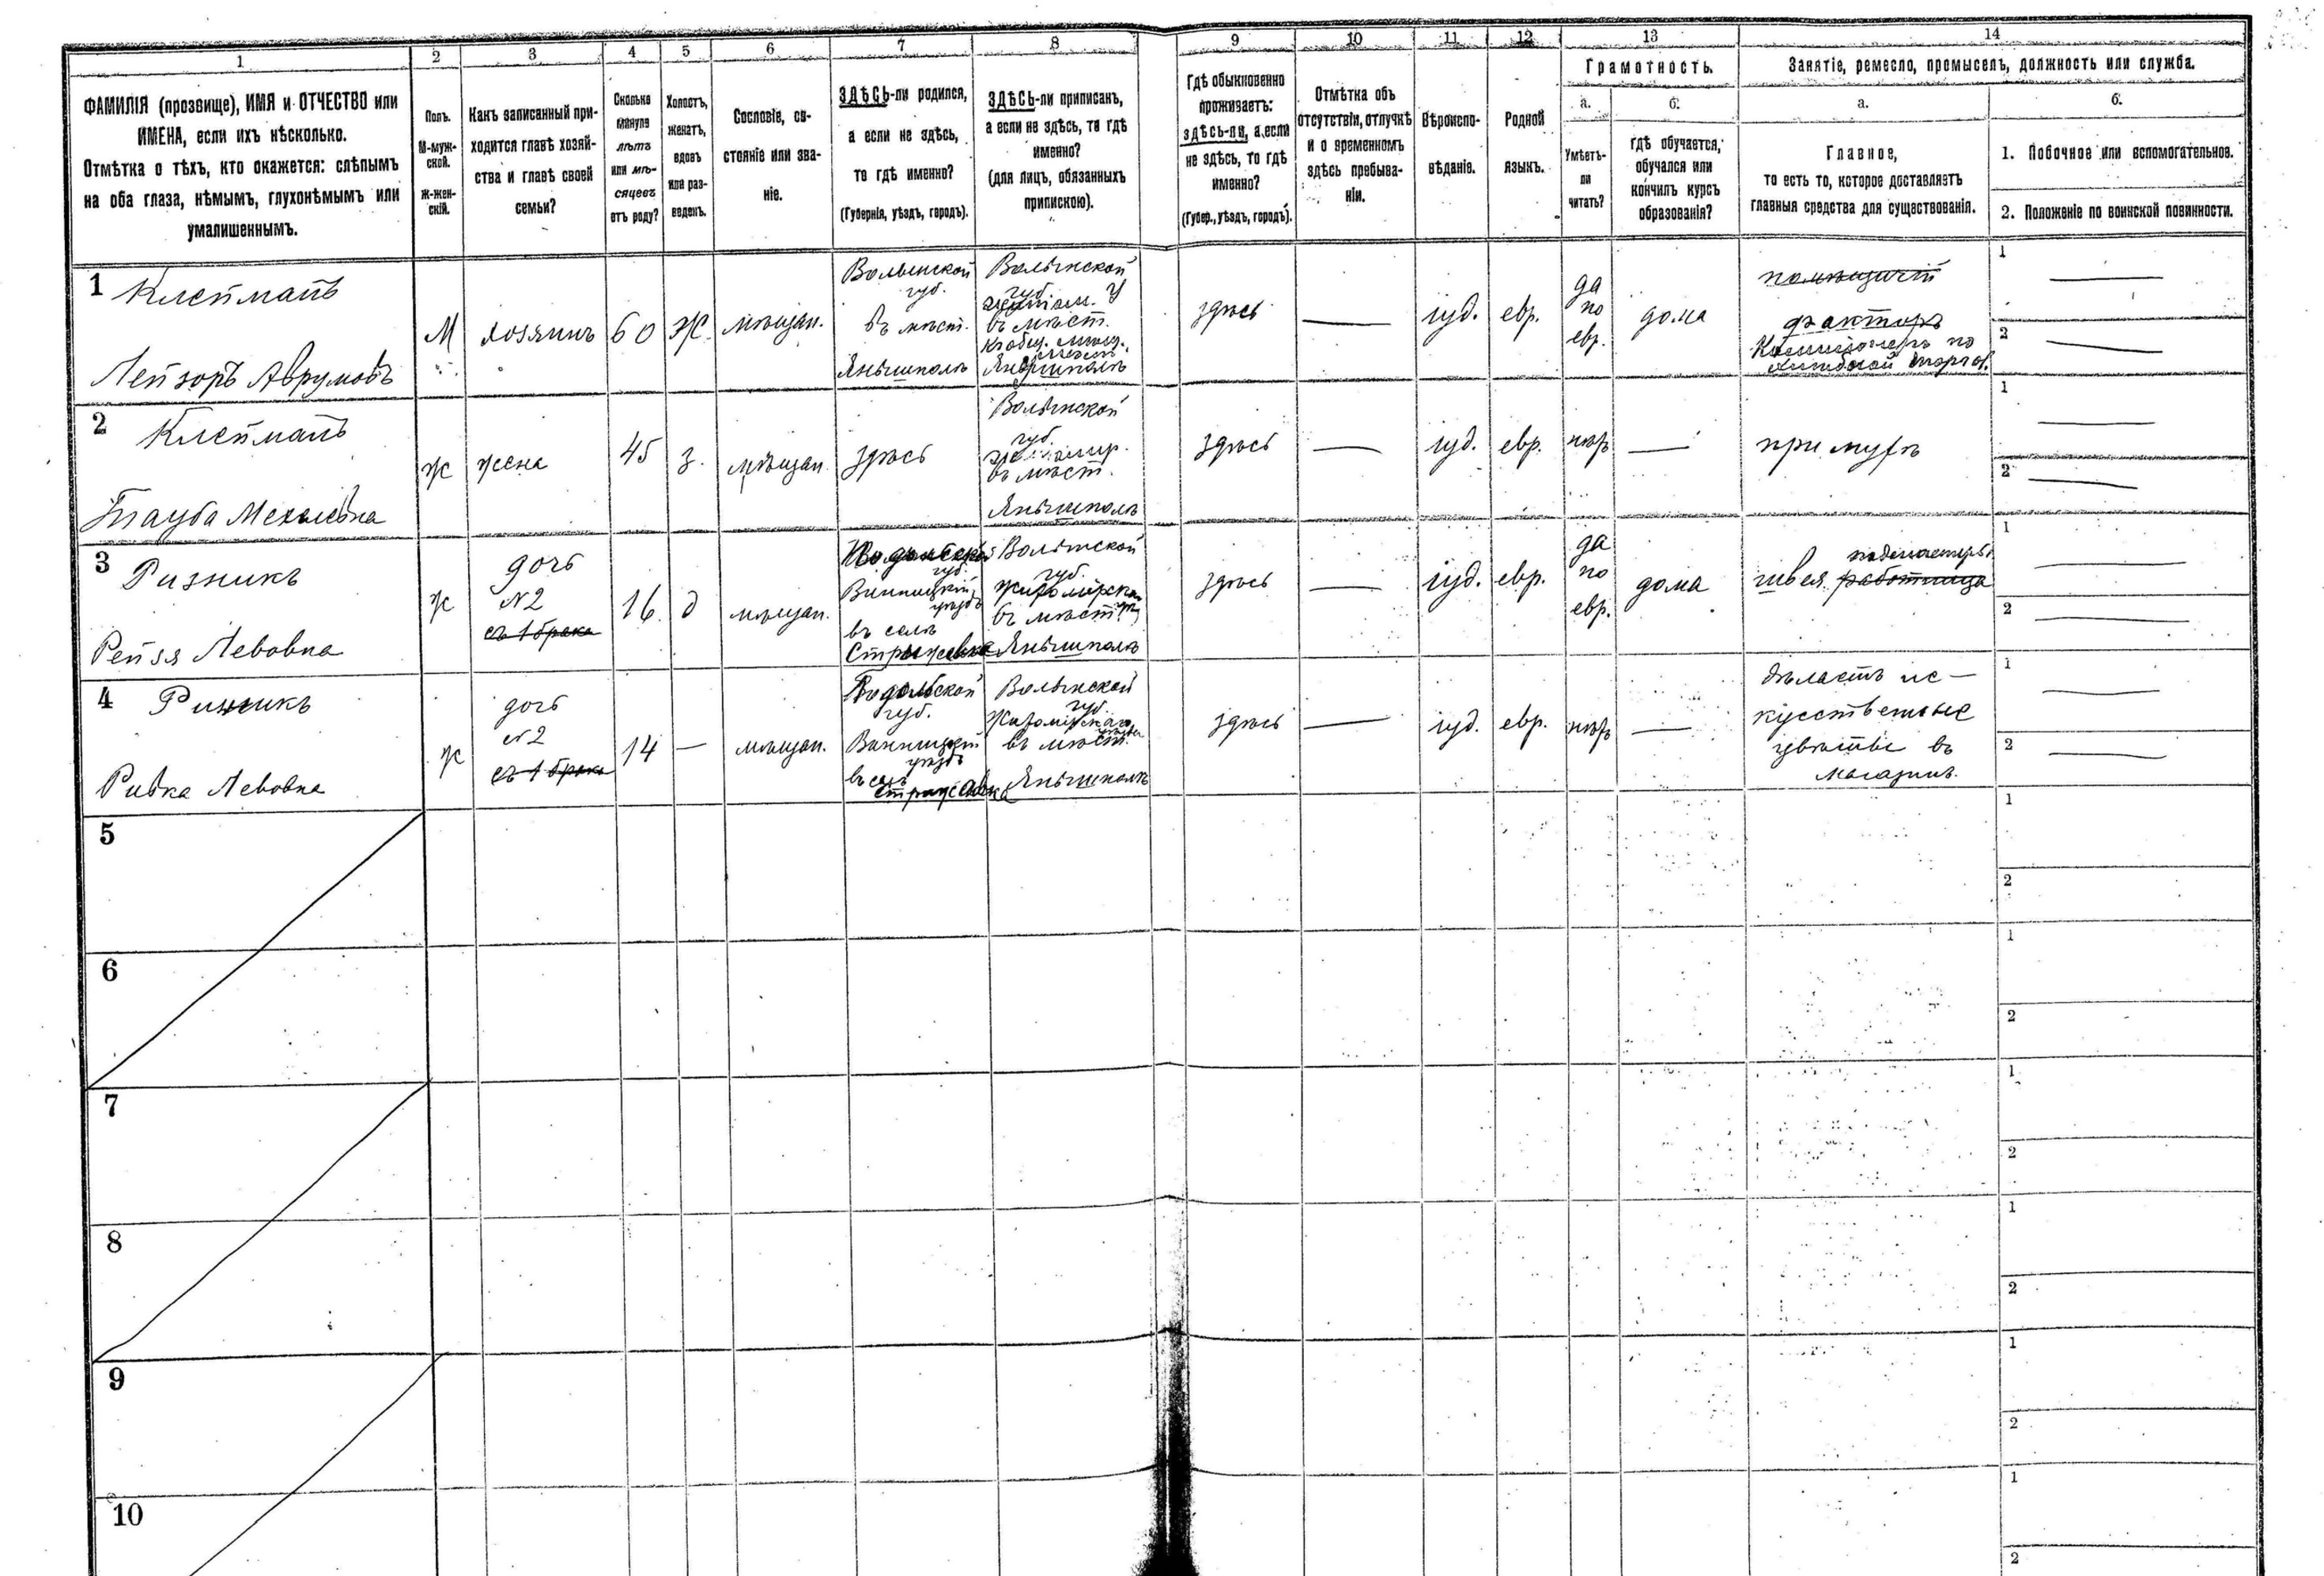 1
2
3
4
5
6
7
8
9
10
11
12
13
14
ФАМИЛІЯ (прозвище), ИМЯ и ОТЧЕСТВО или
ИМЕНА, если ихъ нѣсколько.
Отмѣтка о тѣхъ, кто окажется: слѣпымъ
на оба глаза, нѣмымъ, глухонѣмымъ или
умалишеннымъ.
Полъ.
М-муж-
ской.
Ж-жен-
скій.
Какъ записанный при-
ходится главѣ хозяй-
ства и главѣ своей
семьи?
Сколько
минуло
лѣтъ
или мѣ-
сяцевъ
отъ роду?
Холостъ,
женатъ,
вдовъ
или раз-
веденъ.
Сословіе, со-
стояніе или зва-
ніе.
ЗДѢСЬ-ли родился,
а если не здѣсь,
то гдѣ именно?
(Губернія, уѣздъ, городъ).
ЗДѢСЬ-ли приписанъ,
а если не здѣсь, то гдѣ
именно?
(для лицъ, обязанныхъ
припискою).
Гдѣ обыкновенно
проживаетъ:
здѣсь-ли, а если
не здѣсь, то гдѣ
именно?
(Губер., уѣздъ, городъ).
Отмѣтка объ
отсутствіи, отлучкѣ
и о временномъ
здѣсь пребыва-
ніи.
Вѣроиспо-
вѣданіе.
Родной
языкъ.
Грамотность.
а.
Умѣетъ-
ли
читать?
б.
гдѣ обучается,
обучался или
кончилъ курсъ
образованія?
Занятіе, ремесло, промыселъ, должность или служба.
а.
Главное,
то есть то, которое доставляетъ
главныя средства для существованія.
б.
1. Побочное или вспомогательное.
2. Положеніе по воинской повинности.
1 Клейманъ
Лейзоръ Аврумовъ
М
хозяинъ
60
Ж.
мѣщан.
Волынской
губ.
въ мѣст.
Янышполь
Волынской
губ.
въ мѣст.
Янышполь
здѣсь
—
іуд.
евр.
да
по
евр.
дома
факторъ
1 —
2 —
2 Клейманъ
Тауба Мехилевна
ж
жена
45
з.
мѣщан.
здѣсь
Волынской
губ.
въ мѣст.
Янышполь
здѣсь
—
іуд.
евр.
нѣтъ
—
при мужѣ
1 —
2 —
3 Ризникъ
Рейзя Левовна
ж
дочь
№2
съ 1 брака
16
д
мѣщан.
Подольской
губ.
Винницкій
уѣздъ
въ селѣ
Стрыжевка
Волынской
губ.
Житомірскаго
въ мѣст.
Янышполь
здѣсь
—
іуд.
евр.
да
по
евр.
дома
швея
работница
1 —
2 —
4 Ризникъ
Ривка Левовна
ж
дочь
№2
съ 1 брака
14
—
мѣщан.
Подольской
губ.
Винницкій
уѣздъ
въ селѣ
Стрыжевка
Волынской
губ.
Житомірскаго
въ мѣст.
Янышполь
здѣсь
—
іуд.
евр.
нѣтъ
—
дѣлаетъ ис-
кусственные
цвѣты въ
магазинѣ.
1 —
2 —
5
1
2
6
1
2
7
1
2
8
1
2
9
1
2
10
1
2